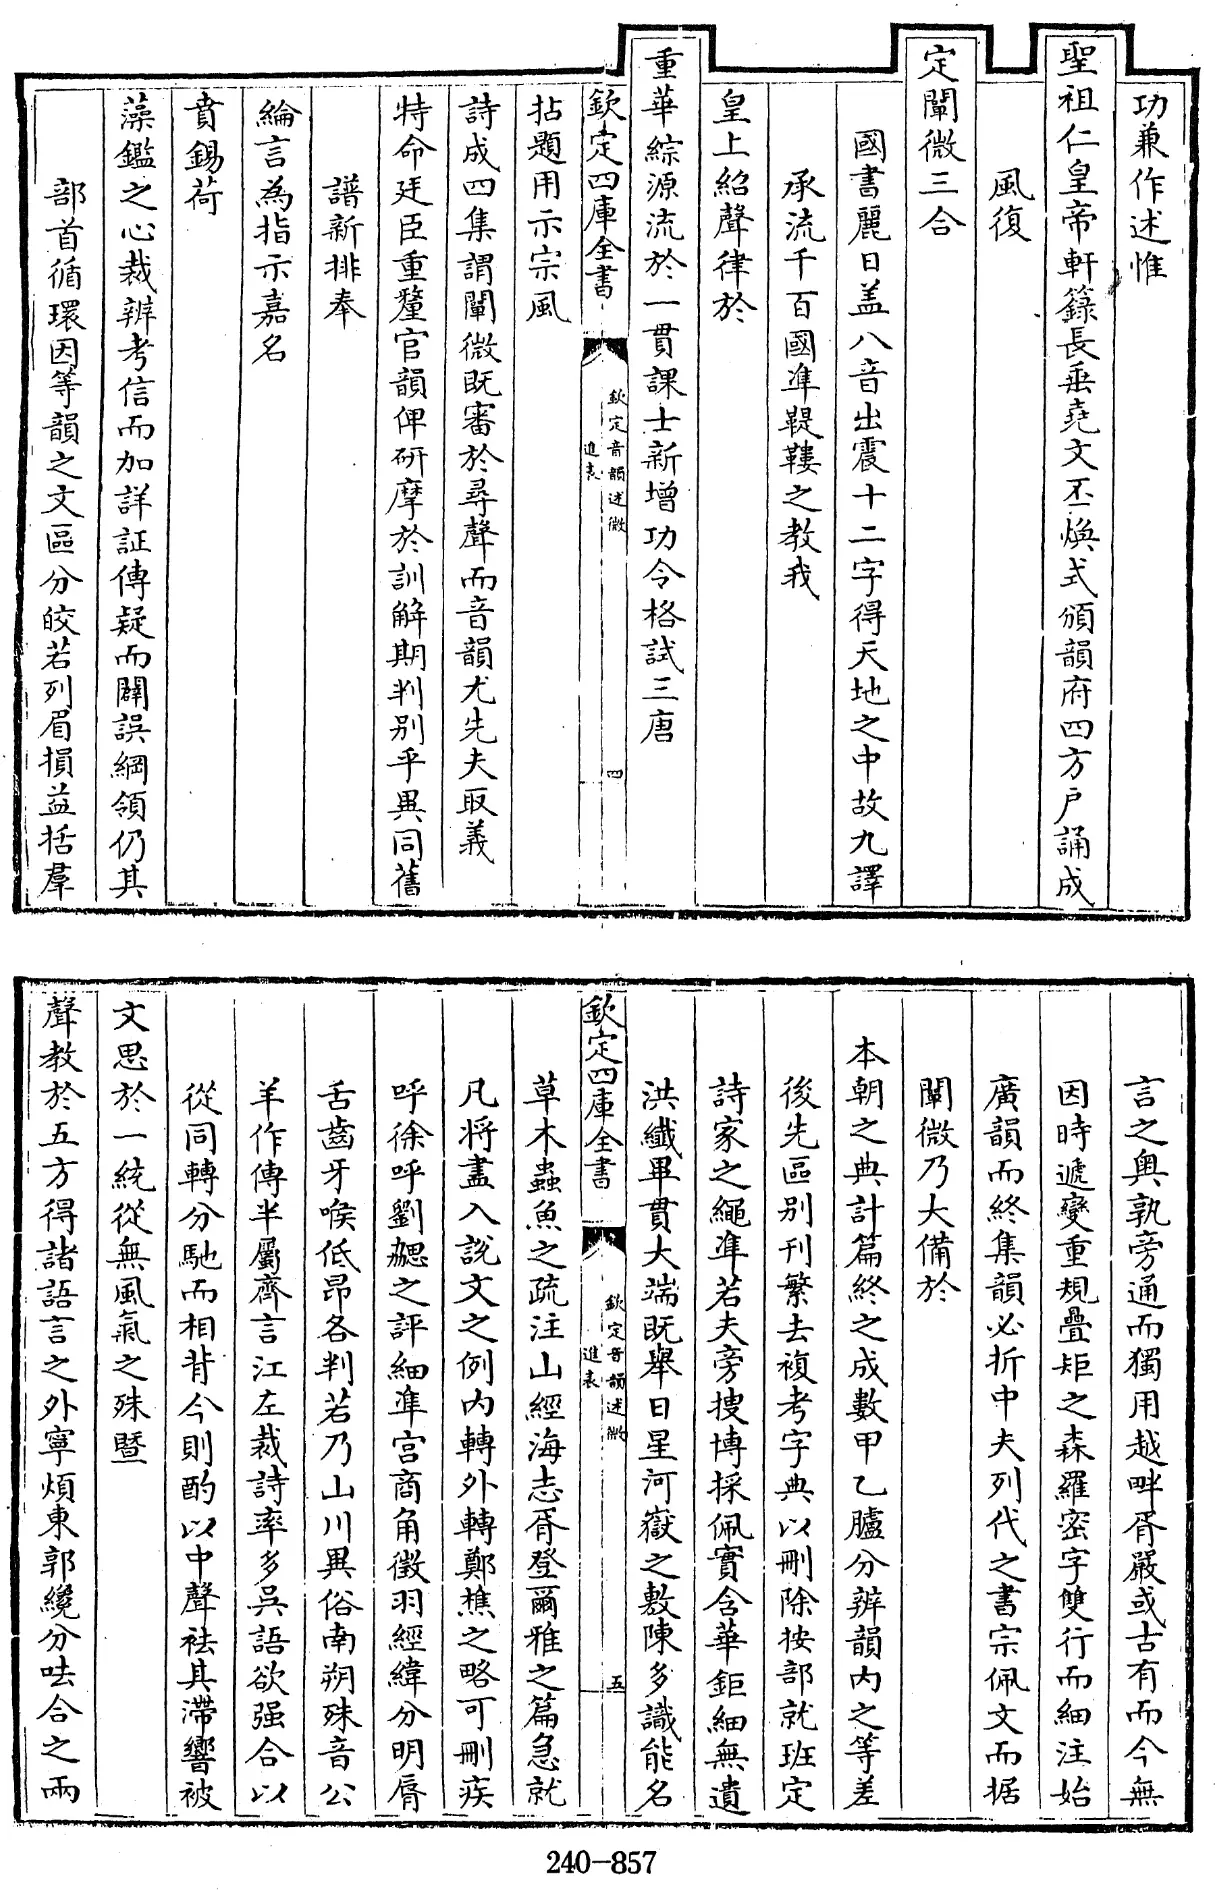 功兼作述惟
聖祖仁皇帝軒籙長垂堯文丕煥式頒韻府四方戶誦成
風復
定闡微三合
國書麗日盖八音出震十二字得天地之中故九譯
承流千百國準鞮鞻之教我
皇上紹聲律於
重華綜源流於一貫課士新增功令格試三唐
欽定四庫全書
欽定音韻述微
進表
四
拈題用示宗風
詩成四集謂闡微既審於尋聲而音韻尤先夫取義
特命廷臣重釐官韻俾研摩於訓解期判別乎異同舊
譜新排奉
綸言為指示嘉名
賁錫荷
藻鑑之心裁辨考信而加詳証傳疑而闢誤綱領仍其
部首循環因等韻之文區分皎若列眉損益括羣
言之奥孰旁通而獨用越畔胥嚴或古有而今無
因時遞變重規疊矩之森羅密字雙行而細注始
廣韻而終集韻必折中夫列代之書宗佩文而据
闡微乃大備於
本朝之典計篇終之成數甲乙臚分辨韻内之等差
後先區别刊繁去複考字典以刪除按部就班定
詩家之繩準若夫旁搜博採佩實含華鉅細無遺
洪纖畢貫大端既舉日星河嶽之敷陳多識能名
欽定四庫全書
欽定音韻述微
進表
五
草木蟲魚之疏注山經海志胥登爾雅之篇急就
凡將盡入說文之例内轉外轉鄭樵之略可刪疾
呼徐呼劉勰之評細準宮商角徵羽經緯分明脣
舌齒牙喉低昂各判若乃山川異俗南朔殊音公
羊作傳半屬齊言江左裁詩率多吳語欲强合以
從同轉分馳而相背今則酌以中聲袪其滯響被
文思於一統從無風氣之殊暨
聲教於五方得諸語言之外寧煩東郭纔分呿合之兩
240-857